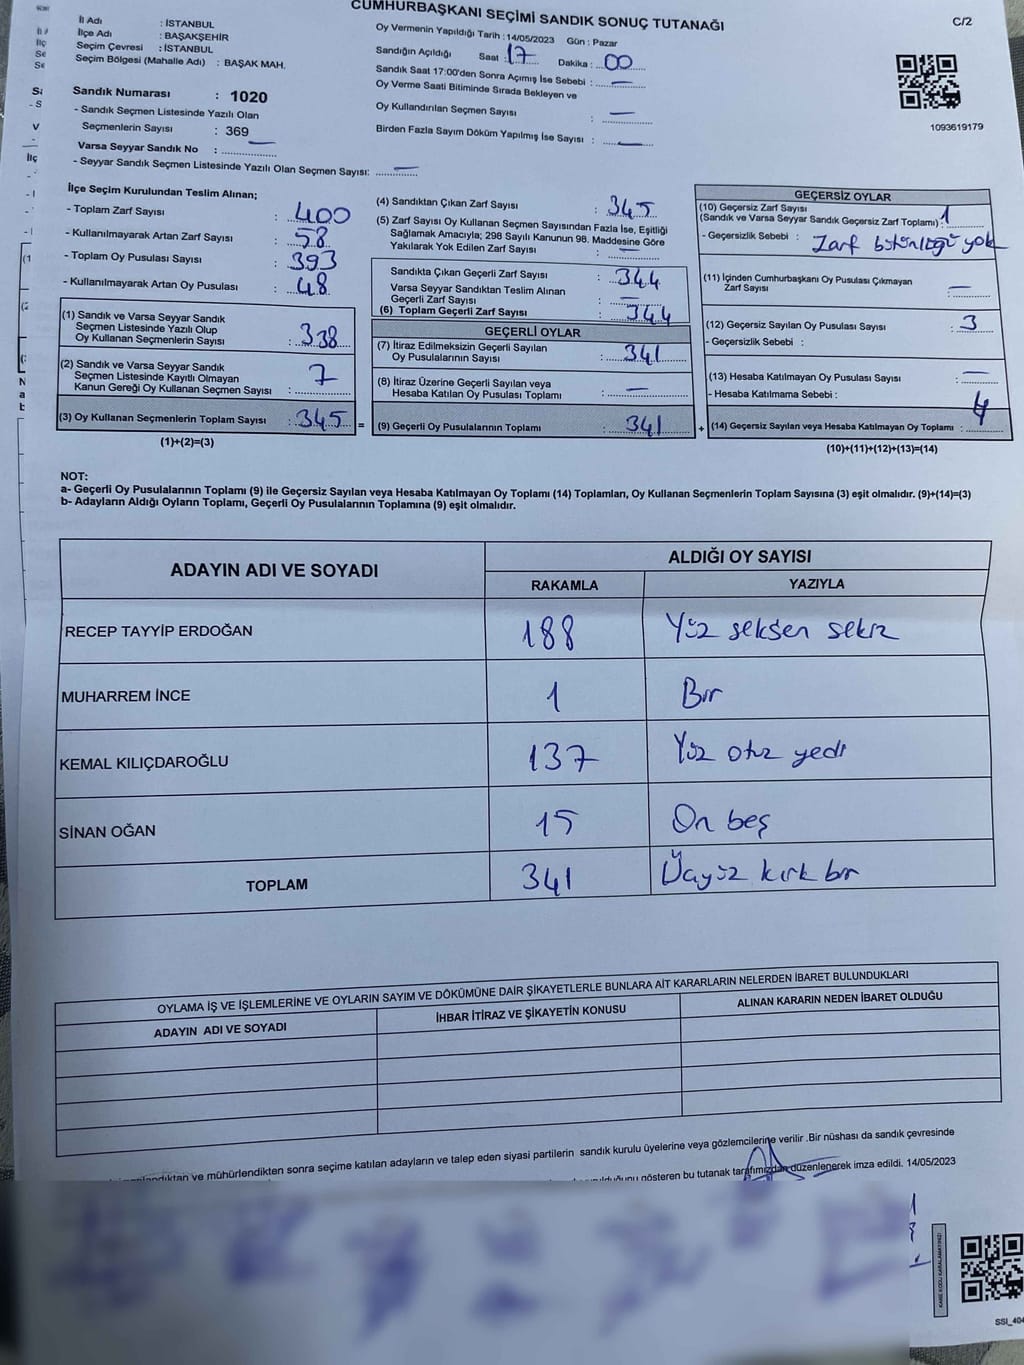 CUMHURBAŞKANI SEÇİMİ SANDIK SONUÇ TUTANAĞI
C/2
İl Adı : İSTANBUL
İlçe Adı : BAŞAKŞEHİR
Seçim Çevresi : İSTANBUL
Seçim Bölgesi (Mahalle Adı) : BAŞAK MAH.
Sandık Numarası : 1020
- Sandık Seçmen Listesinde Yazılı Olan
Seçmenlerin Sayısı : 369
Varsa Seyyar Sandık No : —
- Seyyar Sandık Seçmen Listesinde Yazılı Olan Seçmen Sayısı: —
Oy Vermenin Yapıldığı Tarih : 14/05/2023 Gün : Pazar
Sandığın Açıldığı Saat : 17 Dakika : 00
Sandık Saat 17:00'den Sonra Açımış İse Sebebi : —
Oy Verme Saati Bitiminde Sırada Bekleyen ve
Oy Kullandırılan Seçmen Sayısı : —
Birden Fazla Sayım Döküm Yapılmış İse Sayısı : —
1093619179
İlçe Seçim Kurulundan Teslim Alınan;
- Toplam Zarf Sayısı : 400
- Kullanılmayarak Artan Zarf Sayısı : 58
- Toplam Oy Pusulası Sayısı : 393
- Kullanılmayarak Artan Oy Pusulası : 48
(1) Sandık ve Varsa Seyyar Sandık
Seçmen Listesinde Yazılı Olup
Oy Kullanan Seçmenlerin Sayısı : 338
(2) Sandık ve Varsa Seyyar Sandık
Seçmen Listesinde Kayıtlı Olmayan
Kanun Gereği Oy Kullanan Seçmen Sayısı : 7
(3) Oy Kullanan Seçmenlerin Toplam Sayısı : 345 =
(1)+(2)=(3)
(4) Sandıktan Çıkan Zarf Sayısı : 345
(5) Zarf Sayısı Oy Kullanan Seçmen Sayısından Fazla İse, Eşitliği
Sağlamak Amacıyla; 298 Sayılı Kanunun 98. Maddesine Göre
Yakılarak Yok Edilen Zarf Sayısı : —
Sandıkta Çıkan Geçerli Zarf Sayısı : 344
Varsa Seyyar Sandıktan Teslim Alınan
Geçerli Zarf Sayısı : —
(6) Toplam Geçerli Zarf Sayısı : 344
GEÇERLİ OYLAR
(7) İtiraz Edilmeksizin Geçerli Sayılan
Oy Pusulalarının Sayısı : 341
(8) İtiraz Üzerine Geçerli Sayılan veya
Hesaba Katılan Oy Pusulası Toplamı : —
(9) Geçerli Oy Pusulalarının Toplamı : 341 +
GEÇERSİZ OYLAR
(10) Geçersiz Zarf Sayısı
(Sandık ve Varsa Seyyar Sandık Geçersiz Zarf Toplamı) : 1
- Geçersizlik Sebebi : Zarf bütünlüğü yok
(11) İçinden Cumhurbaşkanı Oy Pusulası Çıkmayan
Zarf Sayısı : —
(12) Geçersiz Sayılan Oy Pusulası Sayısı : 3
- Geçersizlik Sebebi :
(13) Hesaba Katılmayan Oy Pusulası Sayısı : —
- Hesaba Katılmama Sebebi :
(14) Geçersiz Sayılan veya Hesaba Katılmayan Oy Toplamı : 4
(10)+(11)+(12)+(13)=(14)
NOT:
a- Geçerli Oy Pusulalarının Toplamı (9) ile Geçersiz Sayılan veya Hesaba Katılmayan Oy Toplamı (14) Toplamları, Oy Kullanan Seçmenlerin Toplam Sayısına (3) eşit olmalıdır. (9)+(14)=(3)
b- Adayların Aldığı Oyların Toplamı, Geçerli Oy Pusulalarının Toplamına (9) eşit olmalıdır.
ADAYIN ADI VE SOYADI
ALDIĞI OY SAYISI
RAKAMLA YAZIYLA
RECEP TAYYİP ERDOĞAN 188 Yüz seksen sekiz
MUHARREM İNCE 1 Bir
KEMAL KILIÇDAROĞLU 137 Yüz otuz yedi
SİNAN OĞAN 15 On beş
TOPLAM 341 Üçyüz kırk bir
OYLAMA İŞ VE İŞLEMLERİNE VE OYLARIN SAYIM VE DÖKÜMÜNE DAİR ŞİKAYETLERLE BUNLARA AİT KARARLARIN NELERDEN İBARET BULUNDUKLARI
ADAYIN ADI VE SOYADI İHBAR İTİRAZ VE ŞİKAYETİN KONUSU ALINAN KARARIN NEDEN İBARET OLDUĞU
ve mühürlendikten sonra seçime katılan adayların ve talep eden siyasi partilerin sandık kurulu üyelerine veya gözlemcilerine verilir .Bir nüshası da sandık çevresinde
gösteren bu tutanak tarafımızdan düzenlenerek imza edildi. 14/05/2023
KARE KODU KARALAMAYINIZ!